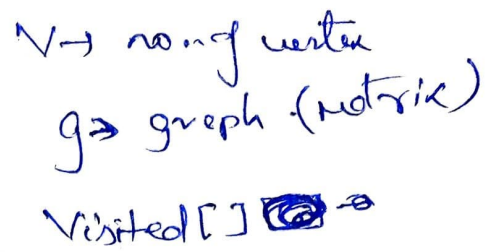 V→ no. of vertex
g→ graph (matrix)
Visited[] →